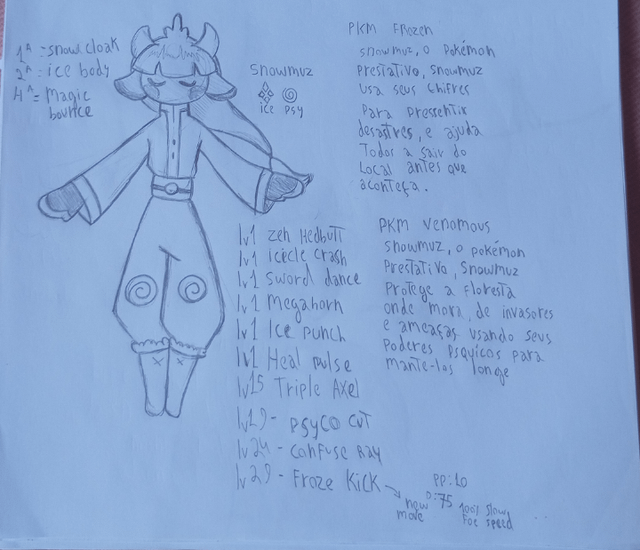 1ª = snow cloak
2ª = ice body
Hª = Magic
bounce
Snowmuz
ice psy
PKM Frozen
snowmuz, o pokémon
prestativo, snowmuz
usa seus chifres
Para pressentir
desastres, e ajuda
Todos a sair do
Local antes que
aconteça.
PKM venomous
snowmuz, o pokémon
Prestativo, snowmuz
Protege a floresta
onde mora, de invasores
e ameaças usando seus
Poderes psquicos para
mante-los longe
lv1 zen Hedbutt
lv1 icicle crash
lv1 sword dance
lv1 Megahorn
lv1 Ice punch
lv1 Heal pulse
lv15 Triple Axel
lv19 - psyco cut
lv24 - confuse Ray
lv29 - Froze Kick
new
move
PP: 10
D: 75 100% slow
foe speed